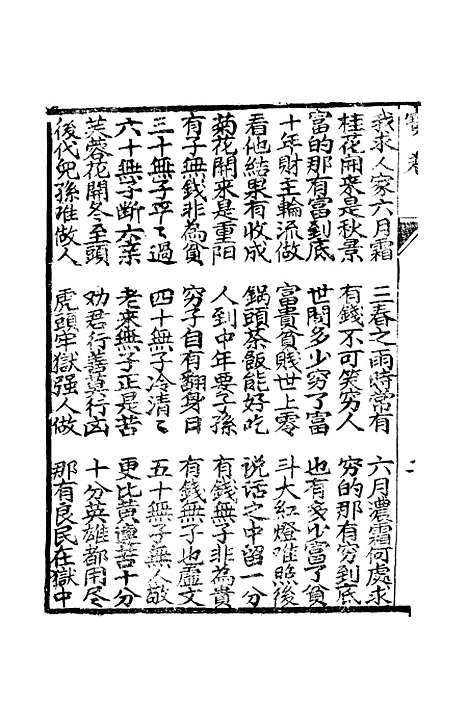 我求人家六月霜　三春之雨時常有　六月濃霜何處求
桂花開來是秋景　有錢不可笑穷人　穷的那有穷到底
富的那有富到底　世間多少穷了富　也有多少富了貧
十年財主輪流做　富貴貧賤世上零　斗大紅燈唯照後
看他結果有收成　鍋頭茶飯能好吃　說话之中留一分
菊花開來是重阳　人到中年要子孫　有錢無子非為貴
有子無錢非為貧　穷子自有翻身日　有錢無子也虛文
三十無子平〻過　四十無子冷清〻　五十無子無人敬
六十無子断六亲　老來無子正是苦　更比黄連苦十分
芙蓉花開冬至頭　劝君行善莫行凶　十分英雄都用尽
後代兒孫谁做人　虎頭牢獄强人做　那有良民在獄中